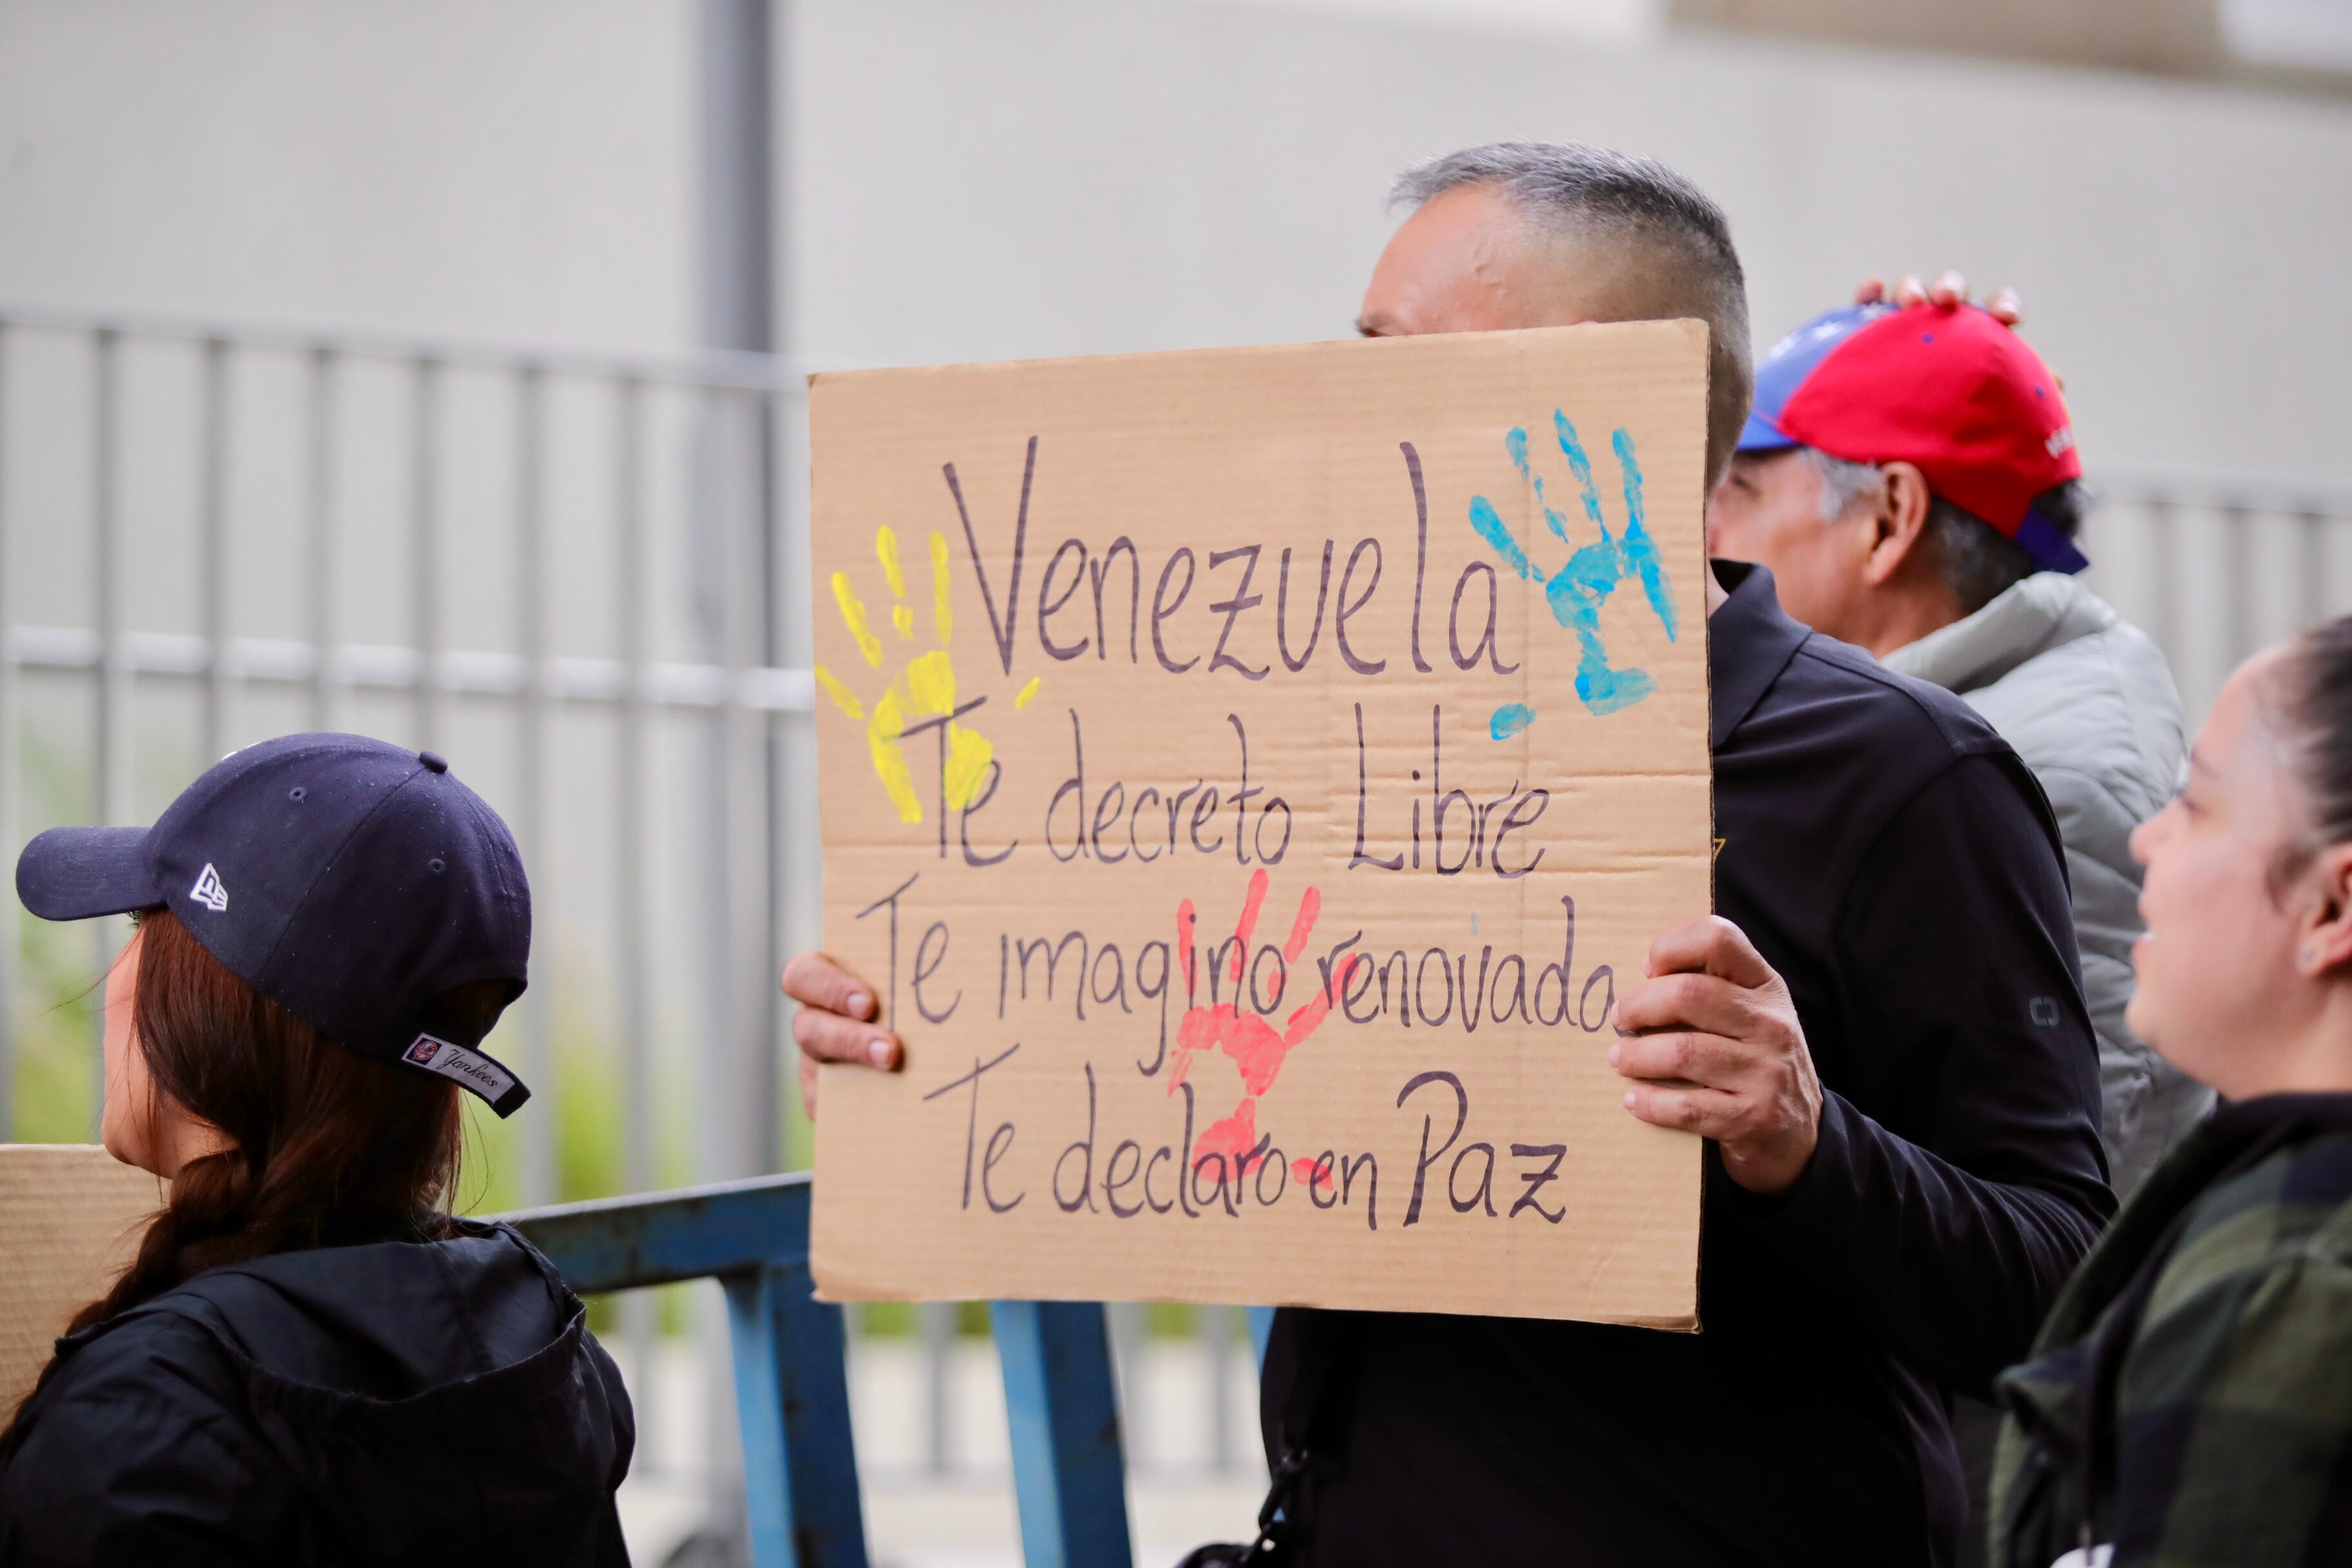 Venezuela
Te decreto Libre
Te imagino renovada
Te declaro en Paz
Yankees